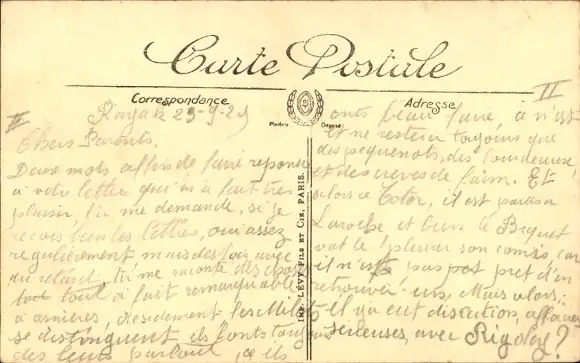 Carte Postale
Correspondance
Adresse
Modèle Déposé
IMP. LÉVY FILS ET CIE, PARIS.
II
Rayak 29-9-25
Chers Parents.
Deux mots affin de faire reponse
à votre lettre qui m'a fait très
plaisir, tu me demande, si je
reçois bien les lettres, oui assez
regulièrement mais des fois avec
du retard, tu me raconte des choses
tout à fait remarquable
à asnières, decidement les
se distinguent ils font toujours
des leurs partout, ce ils
III
onts beau faire, ce n'est
et ne restera toujours que
des pequenots, des
et des creves de faim. Et
alors ce Totor, il est partis a
Laroche et bien le Biquet
vat le pleurer son comis, car
il n'est pas pret d'en
retrouver un, Mais alors,
il y a eut discution, affaires
serieuses, avec Rigoley?